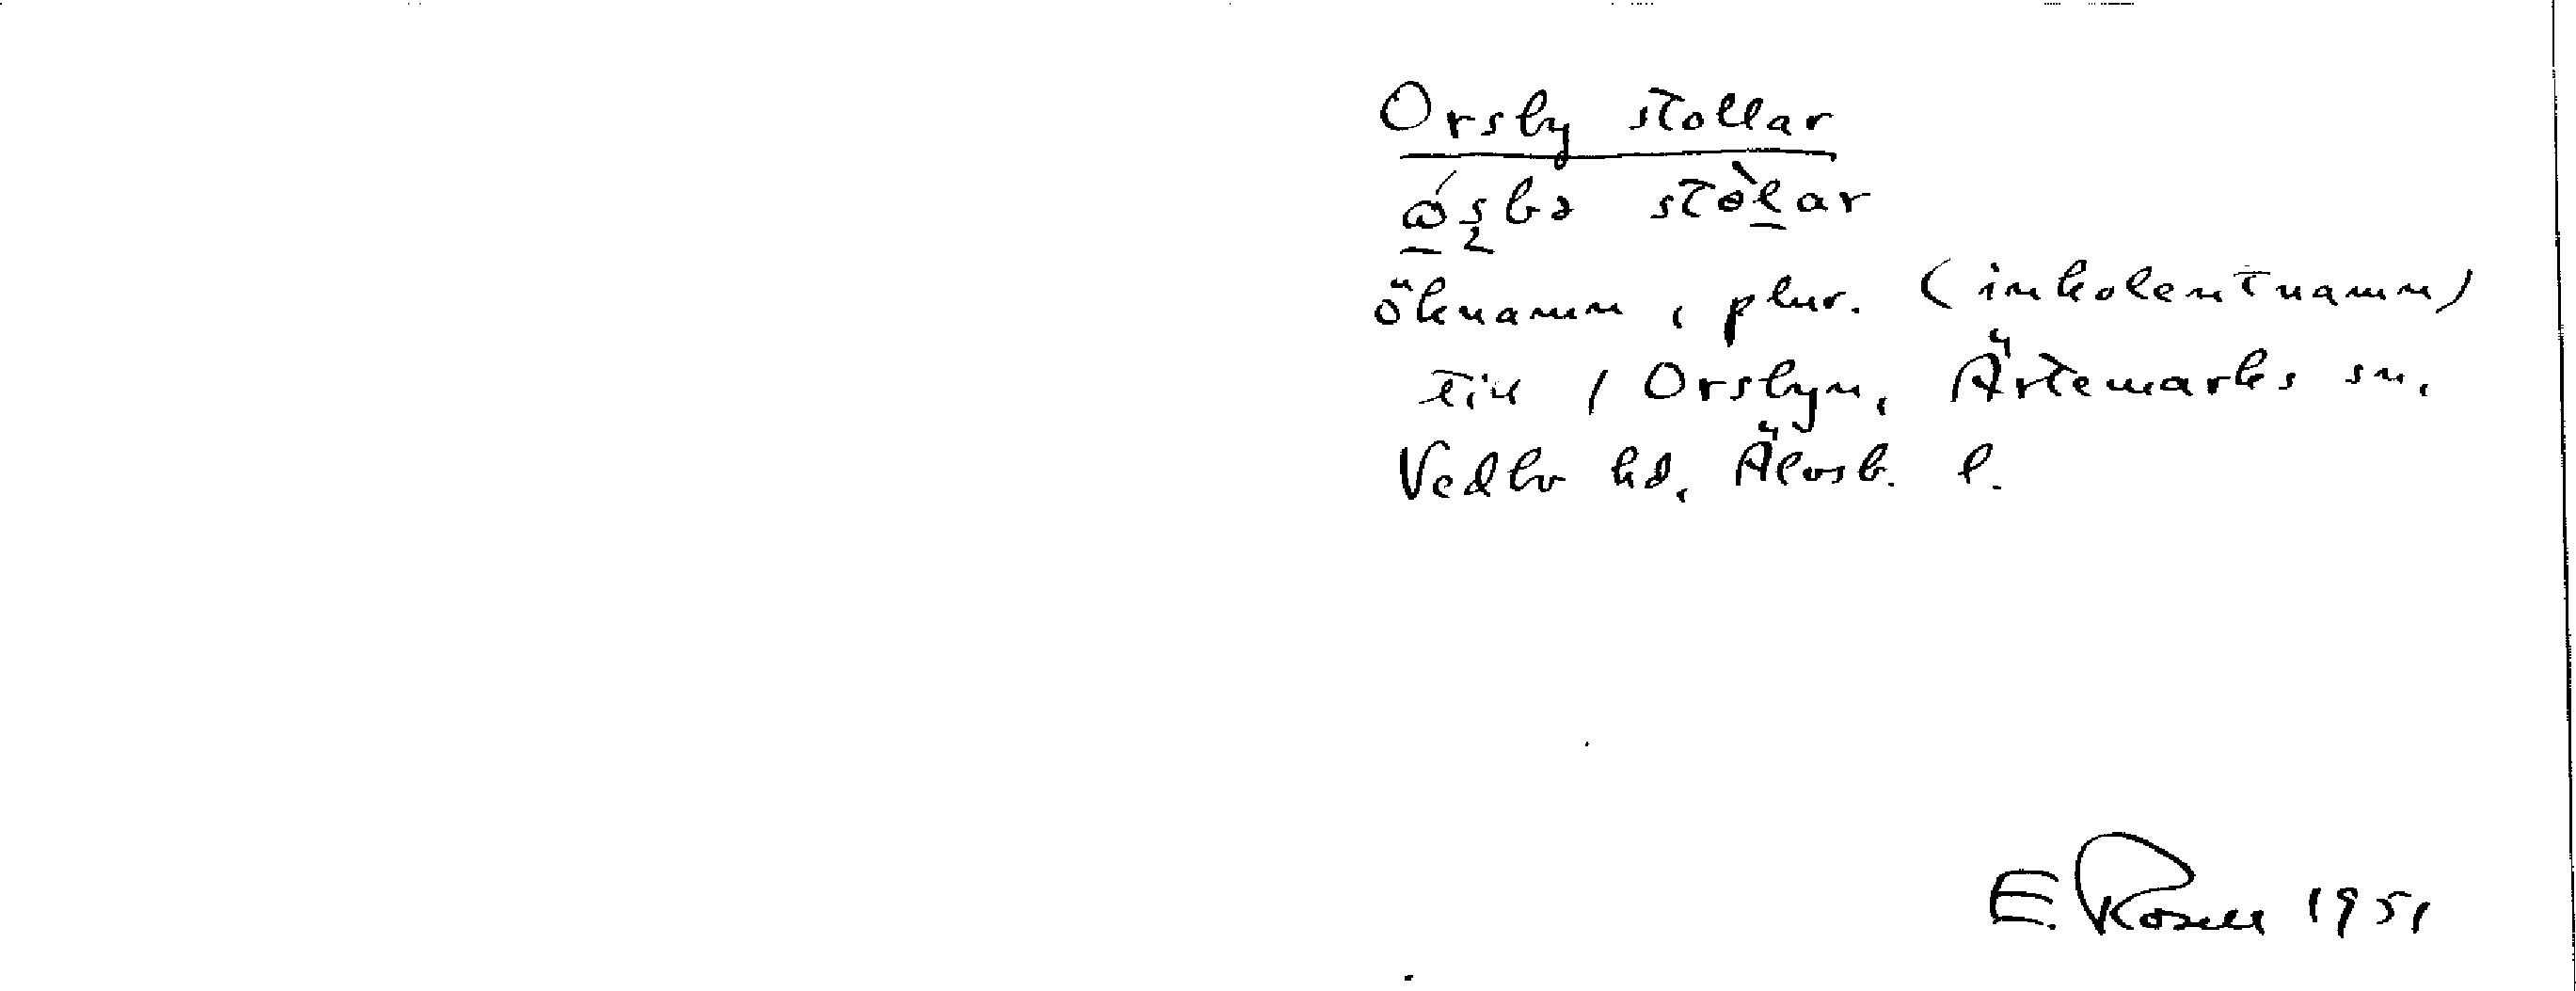 Orsby stollar
ǿʂbə stòlar
öknamn, plur. (inkolentnamn)
till / Orsbyn, Ärtemarks sn,
Vedbo hd, Älvsb. l.
E. Rosell 1951